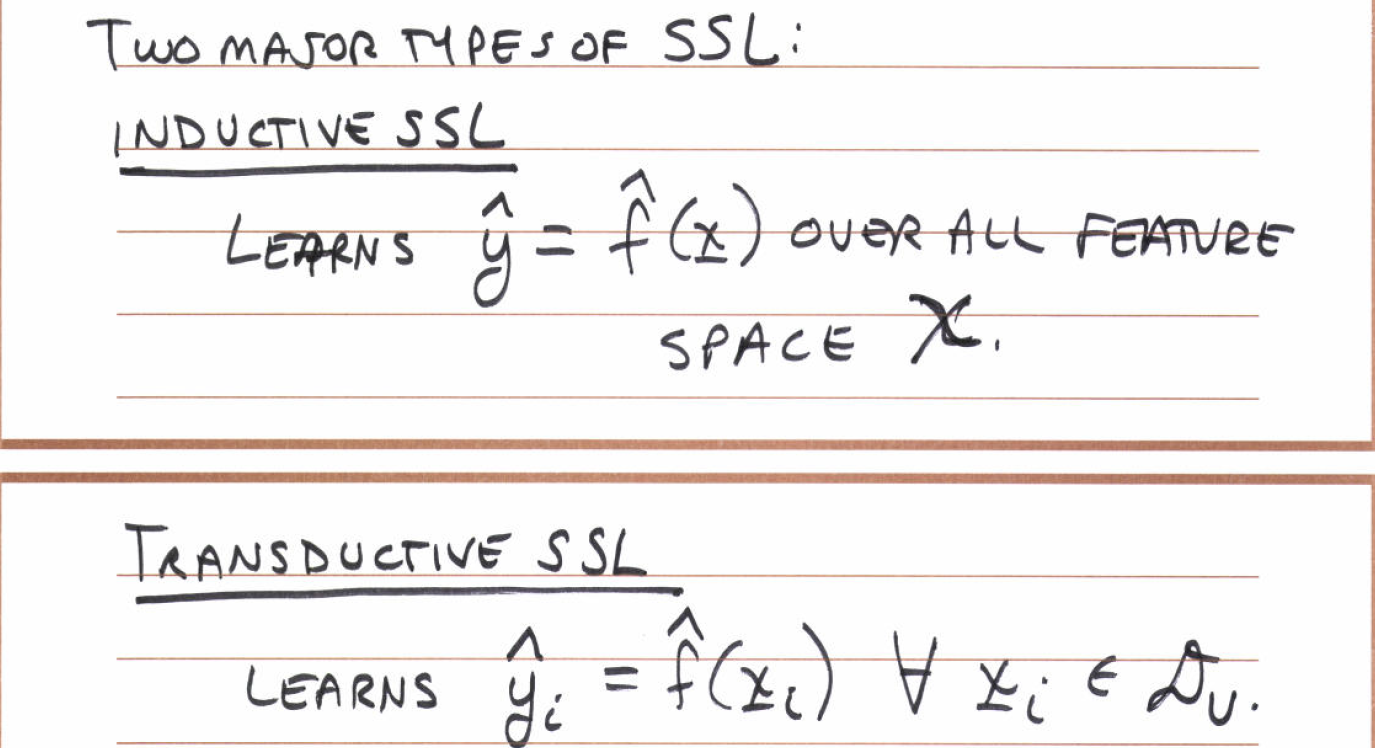 TWO MAJOR TYPES OF SSL:
INDUCTIVE SSL
LEARNS ŷ = f̂(x̲) OVER ALL FEATURE
SPACE 𝒳.
TRANSDUCTIVE SSL
LEARNS ŷᵢ = f̂(x̲ᵢ) ∀ x̲ᵢ ∈ 𝒟ᵤ.